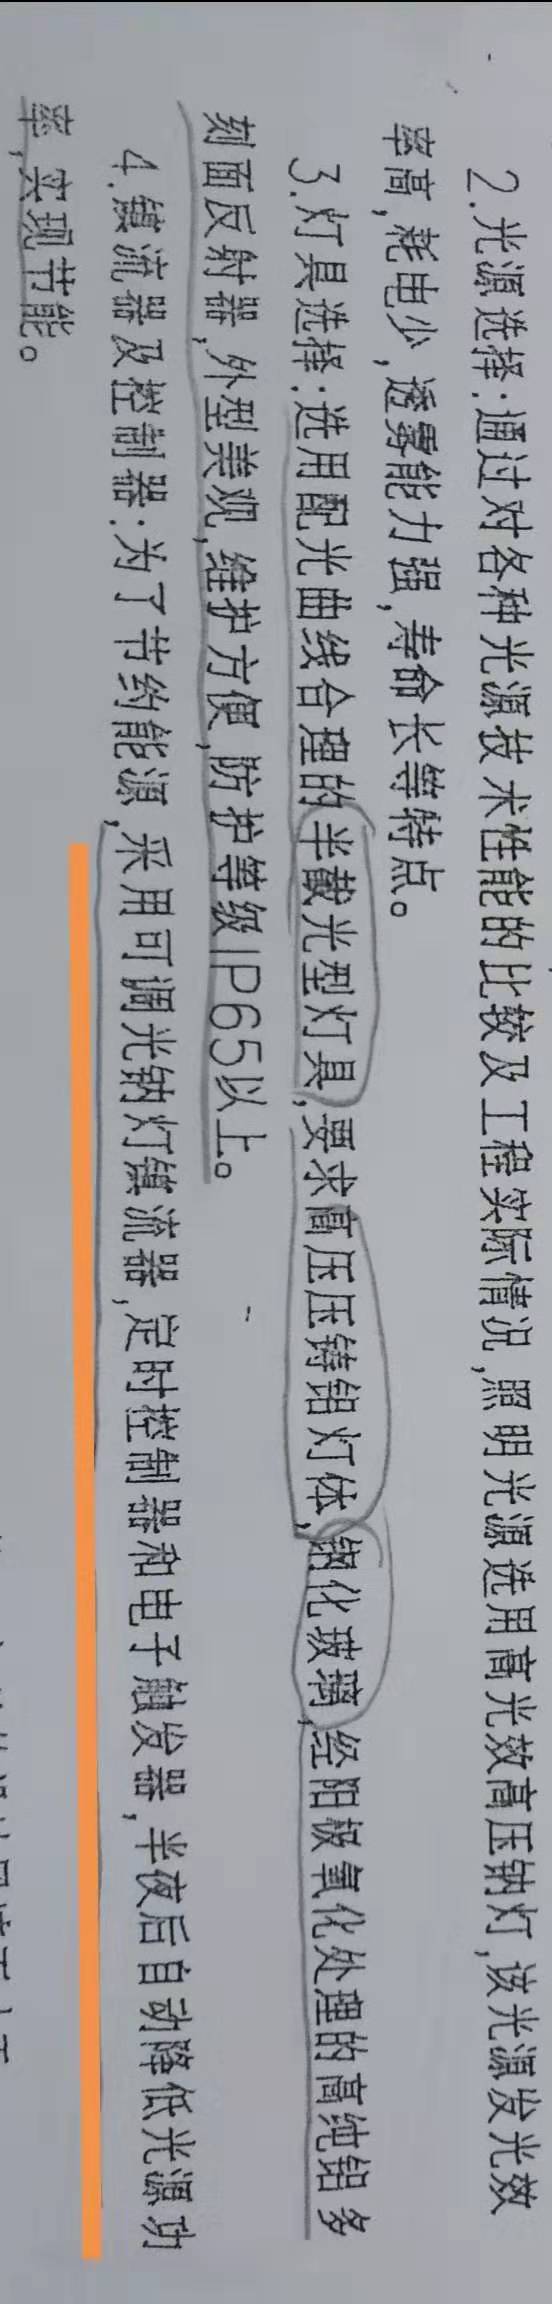 2.光源选择:通过对各种光源技术性能的比较及工程实际情况,照明光源选用高光效高压钠灯,该光源发光效
率高,耗电少,透雾能力强,寿命长等特点。
3.灯具选择:选用配光曲线合理的半截光型灯具,要求高压压铸铝灯体,钢化玻璃,经阳极氧化处理的高纯铝多
刻面反射器,外型美观,维护方便,防护等级IP65以上。
4.镇流器及控制器:为了节约能源,采用可调光钠灯镇流器,定时控制器和电子触发器,半夜后自动降低光源功
率,实现节能。